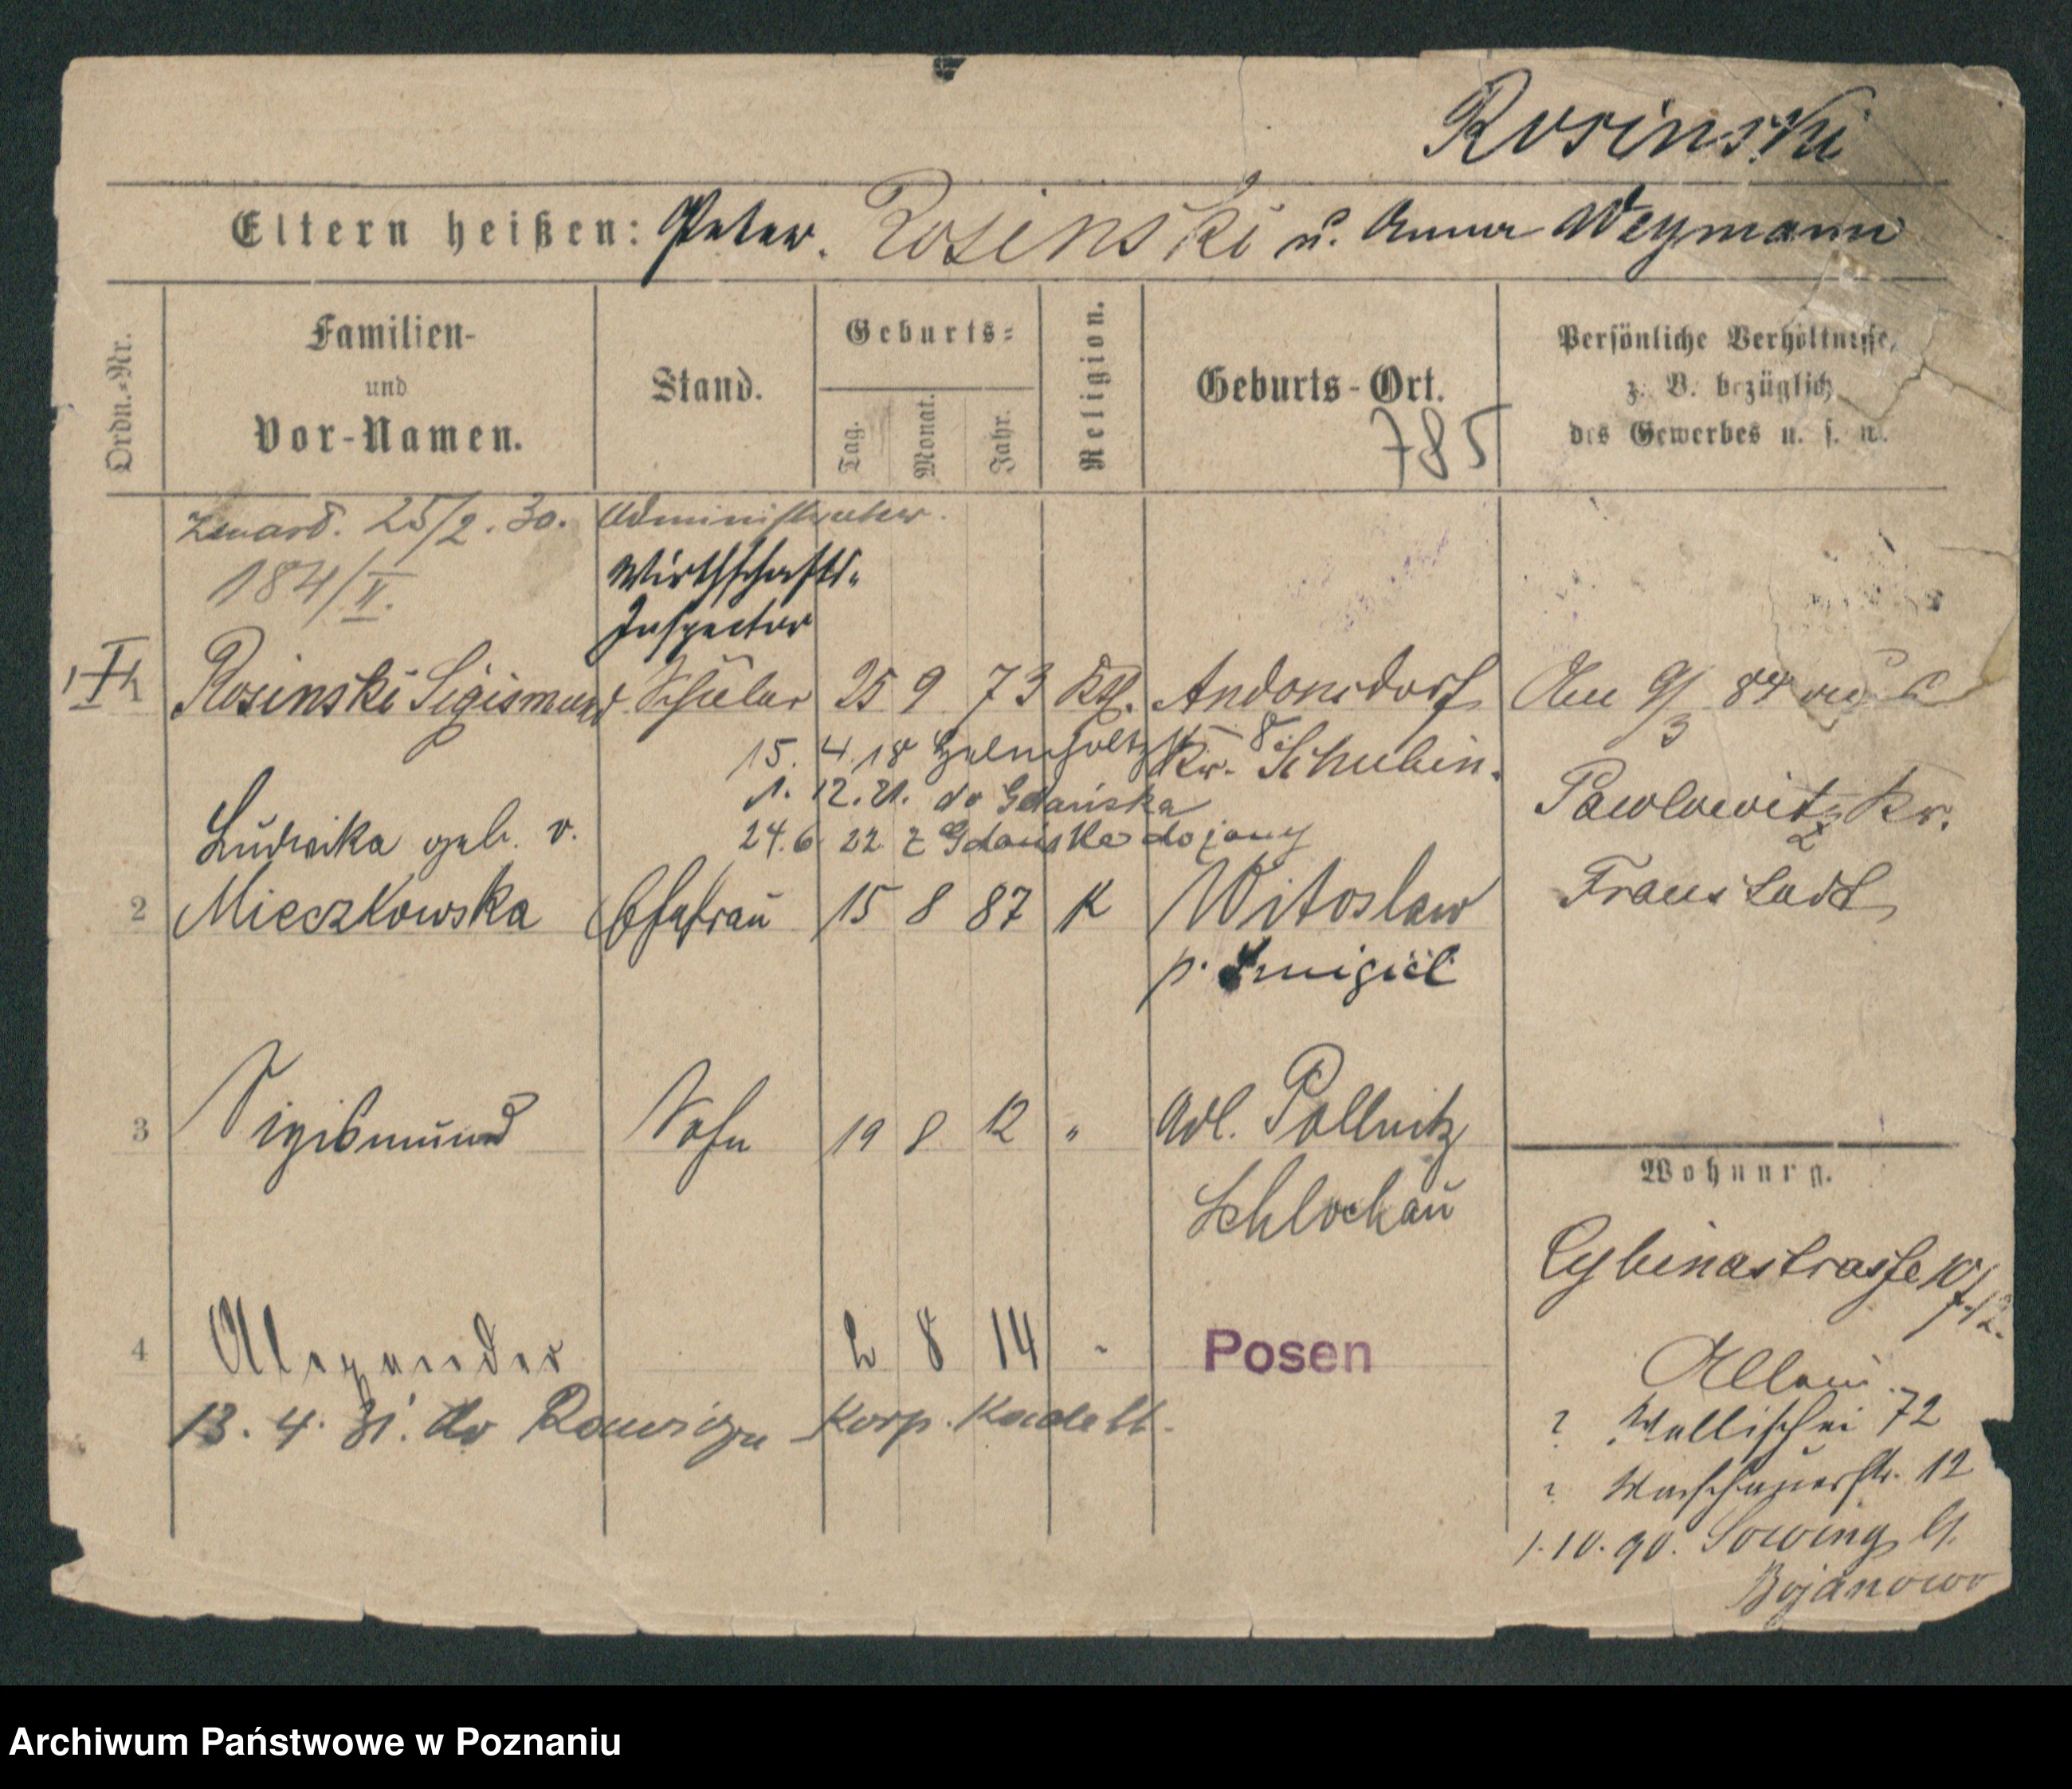 Rosinski
Eltern heißen: Peter. Rosinski u. Anna Weymann
Ordn.-Nr.
Familien-
und
Vor-Namen.
Stand.
Geburts-
Tag.
Monat.
Jahr.
Religion.
Geburts-Ort.
785
Persönliche Verhältnisse,
z. B. bezüglich
des Gewerbes u. s. w.
zmarł. 25/2. 30. Administrator.
184/II.
Wirthschafts-
Inspector
Rosinski Sigismund Schüler 25 9 73 Kth. Andonsdorf
Kr. Schubin.
15. 4. 18
1. 12. 21. do Gdańska
24. 6 22 z Gdańska do żony
Am 9/3 84
Pawlowitz Kr.
Fraustadt
Ludwika geb. v.
2 Mieczkowska Ehefrau 15 8 87 K Witoslaw
p. Smigiel
3 Sigismund Sohn 19 8 12 " Adl. Pollnitz
Schlochau
4 Alexander 2 8 14 - Posen
13. 4. 31. do Rawicza Korp. Kadett.
Wohnung.
Cybinastrasse 10
Allein
? Wallischei 72
? Warschauerstr. 12
1. 10. 90.
Bojanowo
Archiwum Państwowe w Poznaniu